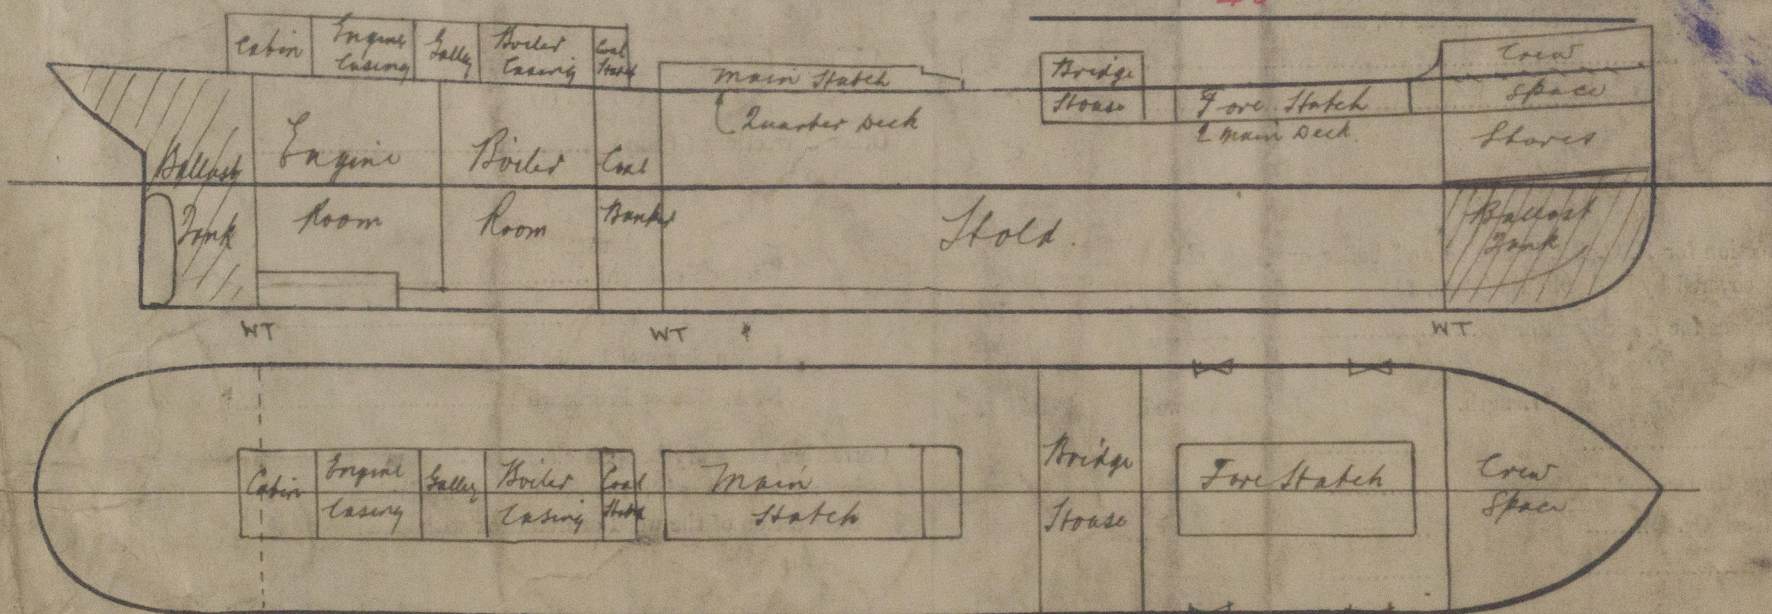 Cabin
Engine
Casing
Galley
Boiler
Casing
Coal
Hatch
Main Hatch
Quarter Deck
Bridge
House
Fore Hatch
Main Deck
Crew
Space
Stores
Ballast
Tank
Engine
Room
Boiler
Room
Coal
Bunker
Hold.
Ballast
Tank
WT
WT
WT
Cabin
Engine
Casing
Galley
Boiler
Casing
Coal
Hatch
Main
Hatch
Bridge
House
Fore Hatch
Crew
Space